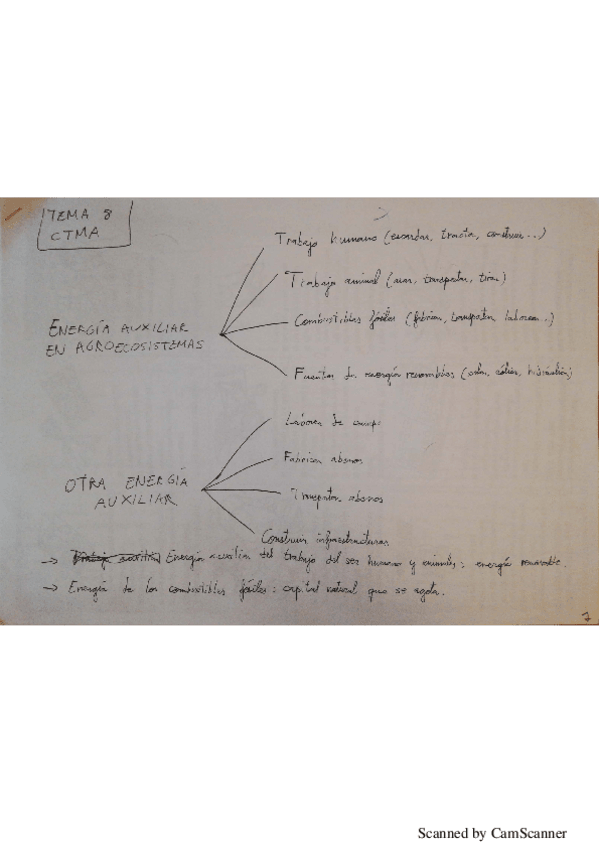 TEMA 8
CTMA
Trabajo humano (escardar, tractor, construir...)
Trabajo animal (arar, transportar, tirar)
ENERGÍA AUXILIAR
EN AGROECOSISTEMAS
Combustibles fósiles (fabricar, transportar, laboreo..)
Fuentes de energía renovables (solar, eólica, hidráulica)
Labores de campo
Fabricar abonos
OTRA ENERGÍA
AUXILIAR
Transportar abonos
Construir infraestructuras
→ Energía auxiliar del trabajo del ser humano y animales: energía renovable.
→ Energía de los combustibles fósiles: capital natural que se agota.
7
Scanned by CamScanner